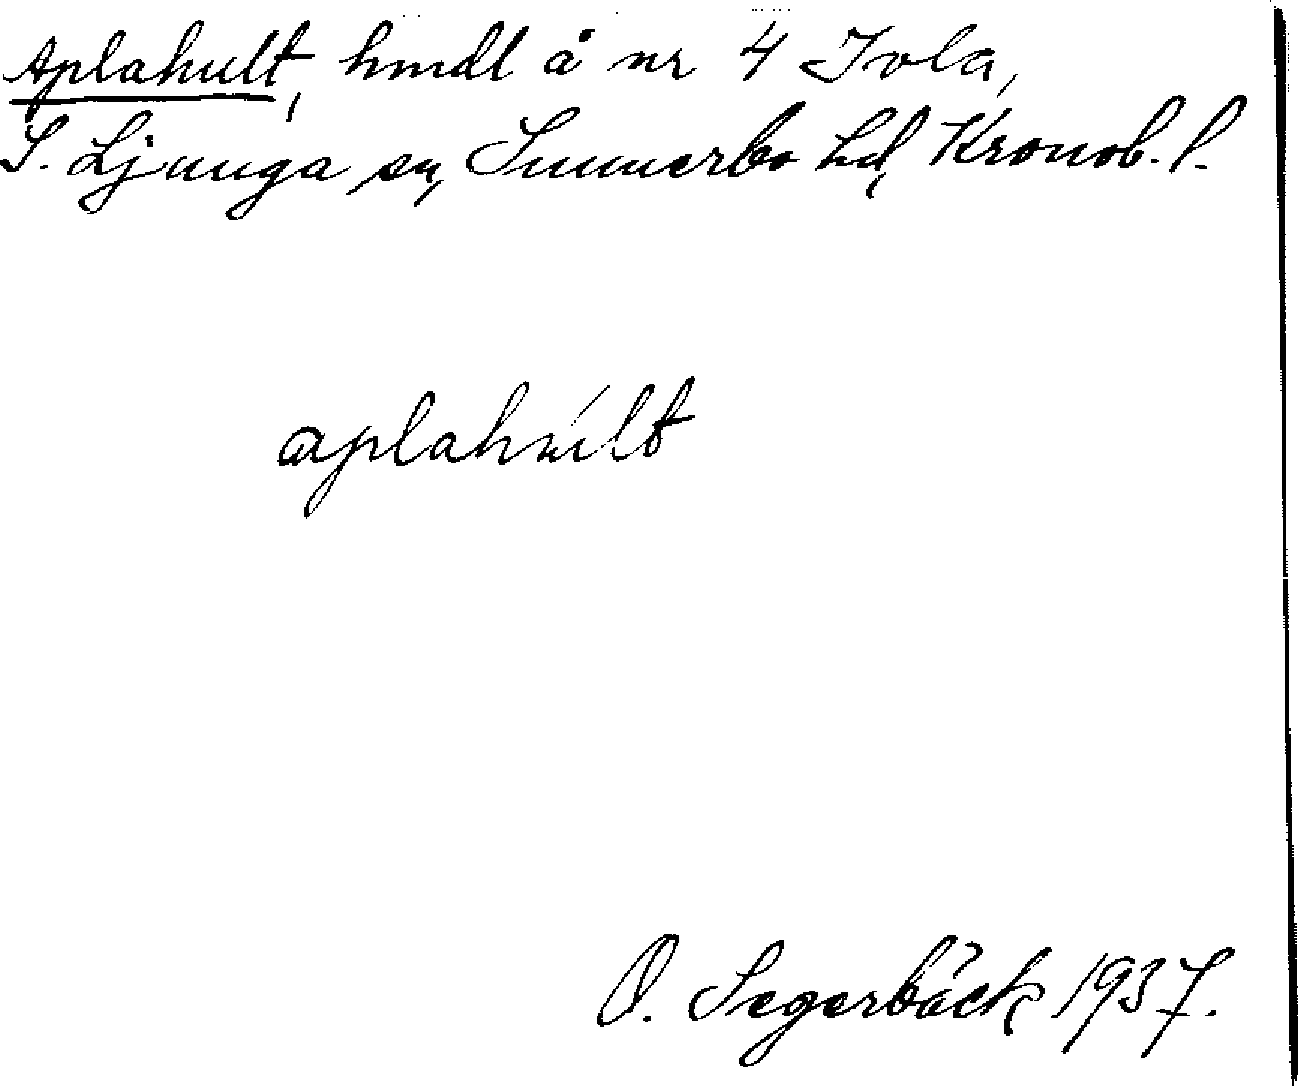 Aplahult, hmdl å nr 4 Ivla,
S. Ljunga sn, Sunnerbo hd, Kronob. l.
aplahult
O. Segerbäck 1937.